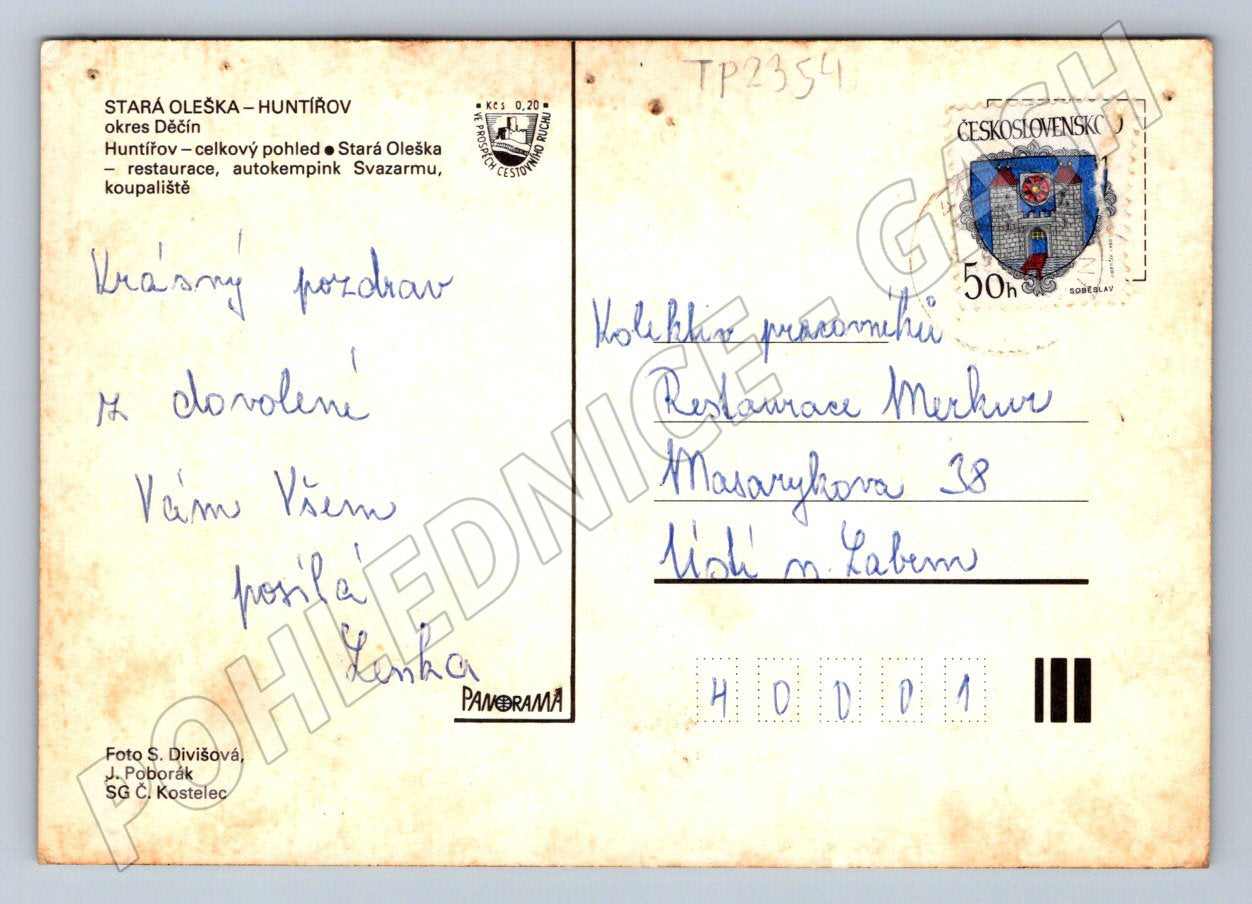 TP2354
STARÁ OLEŠKA – HUNTÍŘOV
okres Děčín
Huntířov – celkový pohled ● Stará Oleška
– restaurace, autokempink Svazarmu,
koupaliště
Kčs 0,20
VE PROSPĚCH CESTOVNÍHO RUCHU
ČESKOSLOVENSKO
50h
SOBĚSLAV
Krásný pozdrav
z dovolené
Vám Všem
posílá
Lenka
PANORAMA
Foto S. Divišová,
J. Poborák
SG Č. Kostelec
Kolektiv pracovníků
Restaurace Merkur
Masarykova 38
Ústí n. Labem
40001
POHLEDNICE - GASH